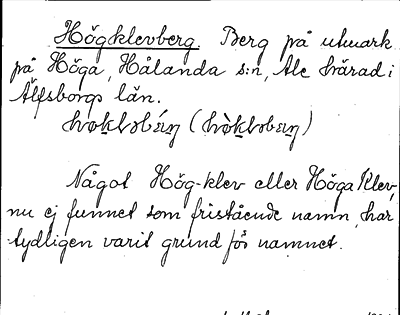 Högklevberg. Berg på utmark
på Höga, Hålanda s:n, Ale härad i
Älfsborgs län.
Något Hög-klev eller Höga Klev,
nu ej funnet som fristående namn, har
tydligen varit grund för namnet.